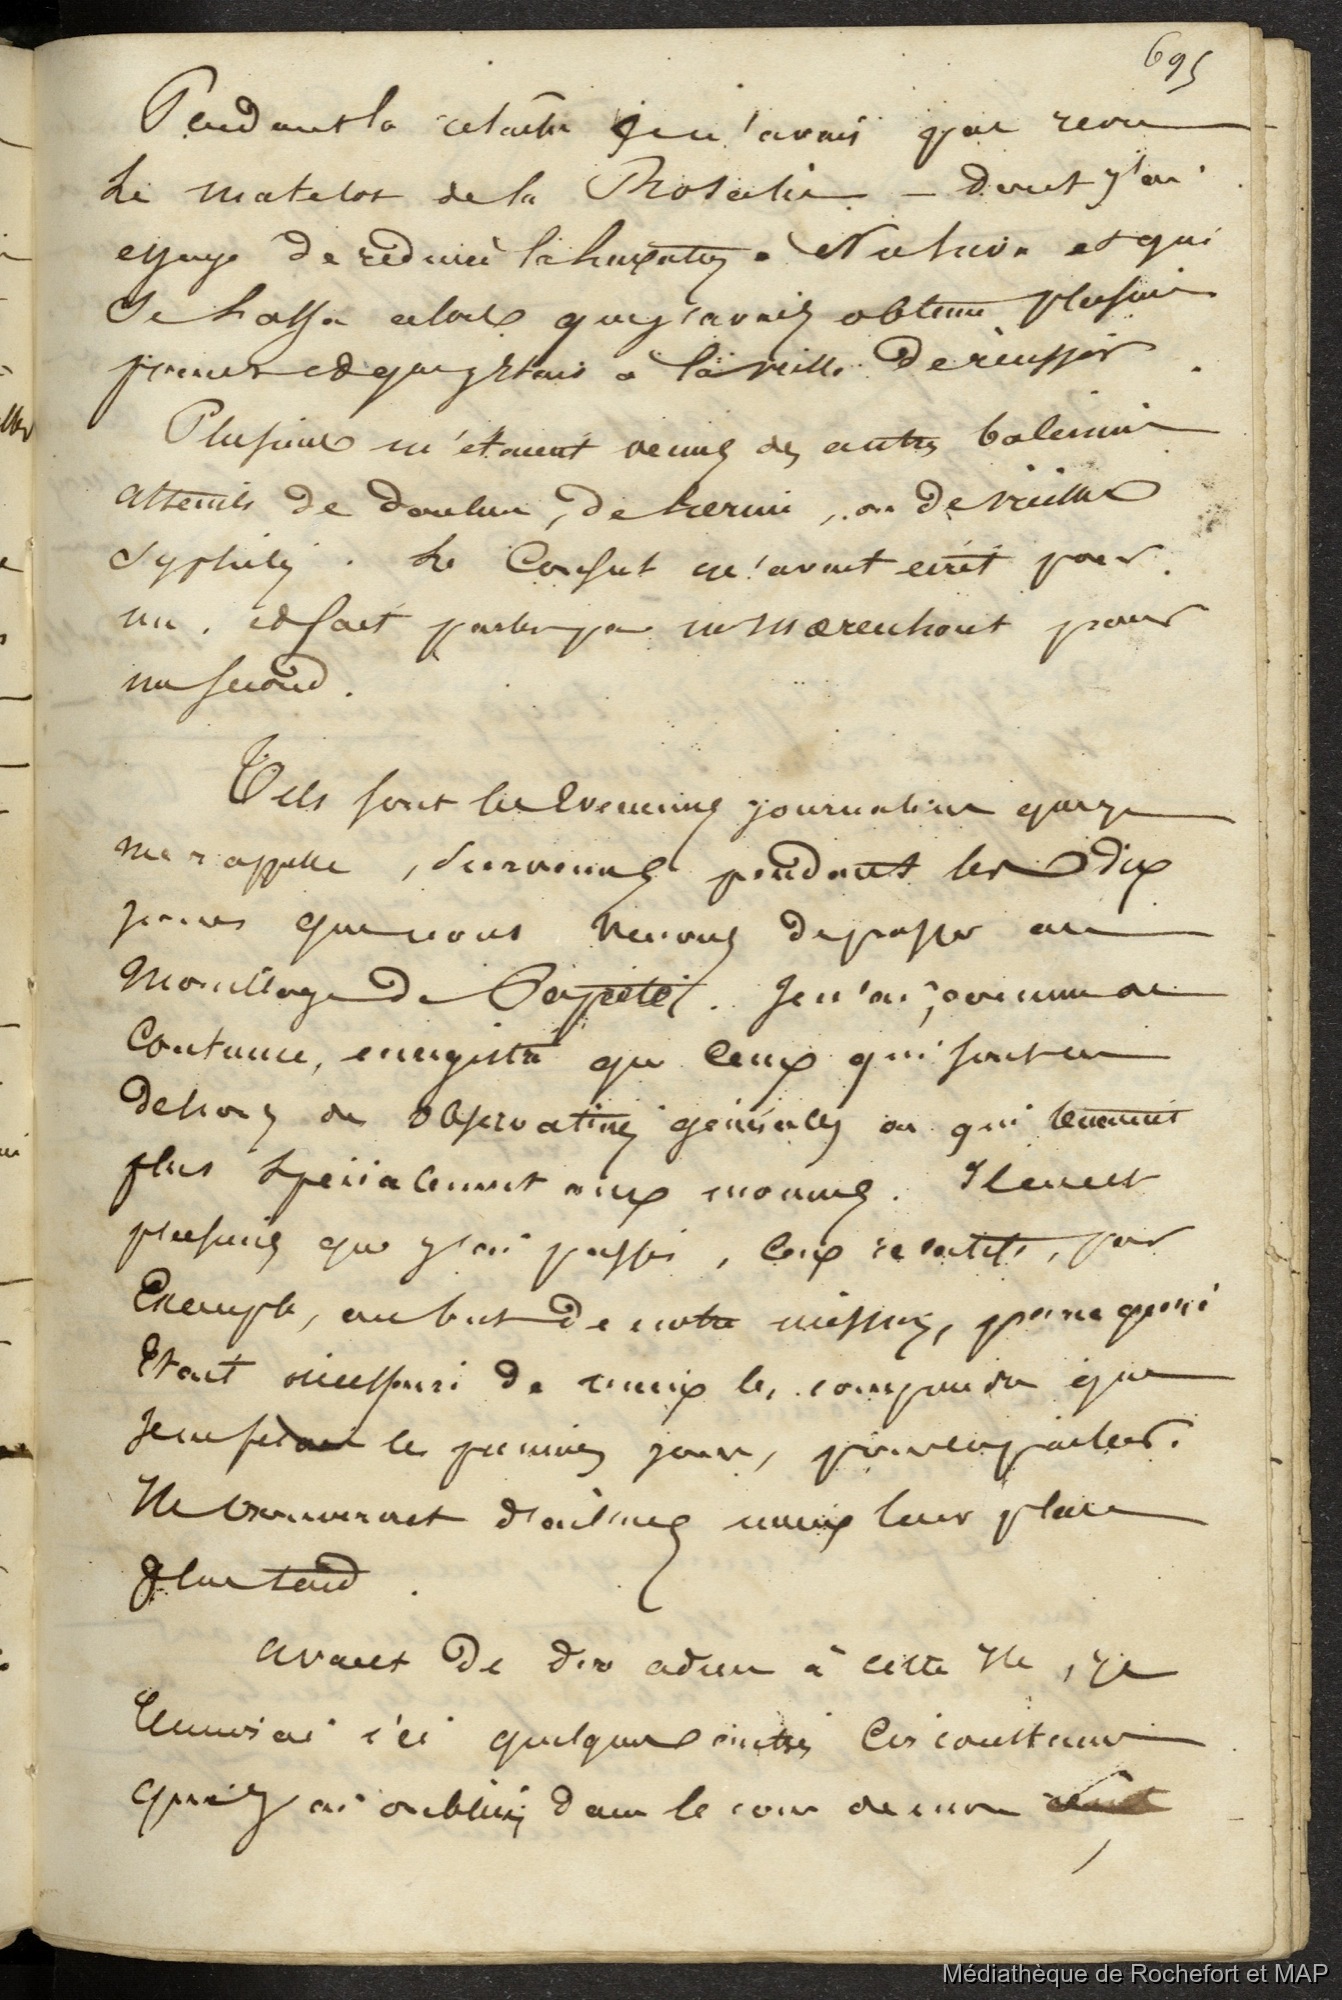 695
Pendant la relache je n'avais pas revu
le matelot de la Rosalie — dont j'ai
essayé de reduire la luxation a Nuhiva et qui
se lassa alors que j'avais obtenu plusieurs
pouces et que j'etais à la veille de réussir.
Plusieurs m'étaient venus des autres baleiniers
atteints de douleurs, de hernie, ou de vieille
syphilis. Le Consul m'avait écrit pour
un. et fait parler par Mr Mœrenhout pour
un second.
Tels sont les évenemens journaliers que je
me rappelle, survenus pendant les dix
jours que nous venons de passer au
mouillage de Papeïti. Je n'ai, comme de
coutume, enregistré que ceux qui sont en
dehors des observations générales ou qui tiennent
plus spécialement aux mœurs. Il en est
plusieurs que j'ai passés, ceux relatifs, par
exemple, au but de notre mission, parce qu'il
était nécessaire de mieux les comprendre que
je ne faisais les premiers jours, pour en parler.
Ils trouveront d'ailleurs mieux leur place
plus tard.
avant de dire adieu à cette île, je
réunirai ici quelques autres circonstances
que j'ai oubliées dans le cours de mon récit
Médiathèque de Rochefort et MAP